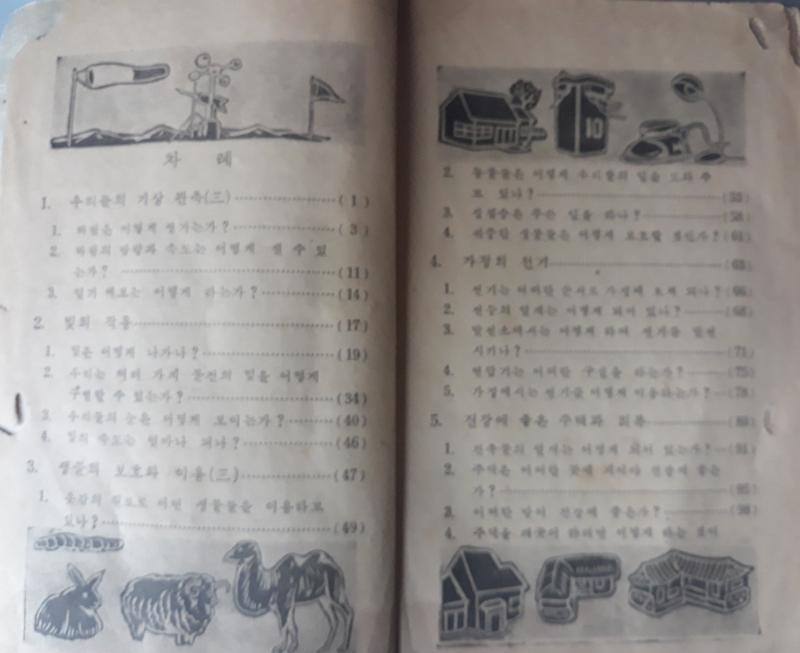 차 례
1. 우리들의 기상 관측(三) ( 1 )
1. 바람은 어떻게 생기는가? ( 3 )
2. 바람의 방향과 속도는 어떻게 잴 수 있
는가? (11)
3. 일기 예보는 어떻게 하는가? (14)
2. 빛의 작용 (17)
1. 빛은 어떻게 나가나? (19)
2. 우리는 여러 가지 물건의 빛을 어떻게
구별할 수 있는가? (34)
3. 우리들의 눈은 어떻게 보이는가? (40)
4. 빛의 속도는 얼마나 되나? (46)
3. 생물의 보호와 이용(三) (47)
1. 옷감의 원료로 어떤 생물들을 이용하고
있나? (49)
10
2. 동물들은 어떻게 우리들의 일을 도와 주
고 있나? (53)
3. 무슨 일을 하나? (58)
4. 생물들은 어떻게 보호할 것인가? (61)
4. 가정의 전기 (63)
1. 전기는 어떠한 순서로 가정에 오게 되나?
2. 전등의 얼개는 어떻게 되어 있나? (68)
3. 발전소에서는 어떻게 하여 전기를 발전
시키나? (71)
4. 변압기는 어떠한 구실을 하는가? (75)
5. 가정에서는 전기를 어떻게 이용하는가? (78)
5. 건강에 좋은 주택과 의복 (89)
1. 건축물의 얼개는 어떻게 되어 있는가? (91)
2. 주택은 어떠한 곳에 지어야 건강에 좋은
가? (95)
3. 어떠한 방이 건강에 좋은가? (98)
4. 주택을 깨끗이 하려면 어떻게 하는 것이